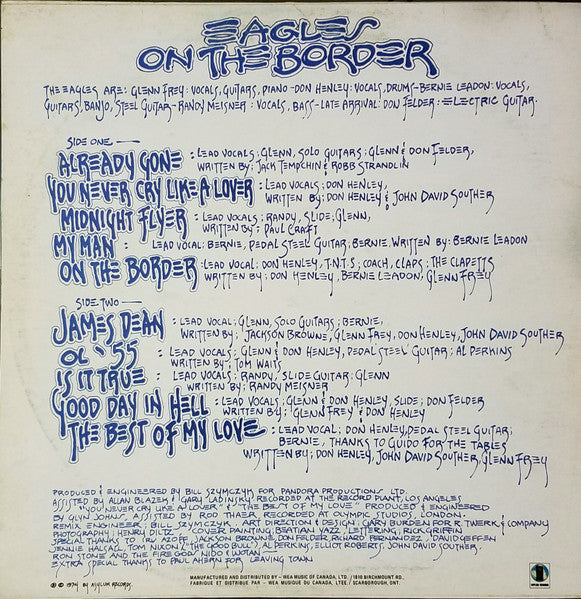 EAGLES
ON THE BORDER
THE EAGLES ARE: GLENN FREY: VOCALS, GUITARS, PIANO - DON HENLEY: VOCALS, DRUMS - BERNIE LEADON: VOCALS,
GUITARS, BANJO, STEEL GUITAR - RANDY MEISNER: VOCALS, BASS - LATE ARRIVAL: DON FELDER: ELECTRIC GUITAR.
SIDE ONE —
ALREADY GONE : LEAD VOCALS: GLENN, SOLO GUITARS: GLENN & DON FELDER,
WRITTEN BY: JACK TEMPCHIN & ROBB STRANDLIN
YOU NEVER CRY LIKE A LOVER : LEAD VOCALS: DON HENLEY,
WRITTEN BY: DON HENLEY & JOHN DAVID SOUTHER
MIDNIGHT FLYER : LEAD VOCALS: RANDY, SLIDE: GLENN,
WRITTEN BY: PAUL CRAFT
MY MAN : LEAD VOCAL: BERNIE, PEDAL STEEL GUITAR: BERNIE. WRITTEN BY: BERNIE LEADON
ON THE BORDER : LEAD VOCAL: DON HENLEY, T.N.T.S: COACH, CLAPS: THE CLAPETTS
WRITTEN BY: DON HENLEY, BERNIE LEADON, GLENN FREY
SIDE TWO —
JAMES DEAN : LEAD VOCALS: GLENN, SOLO GUITARS: BERNIE,
WRITTEN BY: JACKSON BROWNE, GLENN FREY, DON HENLEY, JOHN DAVID SOUTHER
OL' 55 : LEAD VOCALS: GLENN & DON HENLEY, PEDAL STEEL GUITAR: AL PERKINS
WRITTEN BY: TOM WAITS
IS IT TRUE : LEAD VOCALS: RANDY, SLIDE GUITAR: GLENN
WRITTEN BY: RANDY MEISNER
GOOD DAY IN HELL : LEAD VOCALS: GLENN & DON HENLEY, SLIDE: DON FELDER
WRITTEN BY: GLENN FREY & DON HENLEY
THE BEST OF MY LOVE : LEAD VOCAL: DON HENLEY, PEDAL STEEL GUITAR:
BERNIE, THANKS TO GUIDO FOR THE TABLES
WRITTEN BY: DON HENLEY, JOHN DAVID SOUTHER, GLENN FREY
PRODUCED & ENGINEERED BY BILL SZYMCZYK FOR PANDORA PRODUCTIONS LTD.
ASSISTED BY ALLAN BLAZEK & GARY LADINSKY: RECORDED AT THE RECORD PLANT, LOS ANGELES
"YOU NEVER CRY LIKE A LOVER" & "THE BEST OF MY LOVE" PRODUCED & ENGINEERED
BY GLYN JOHNS: ASSISTED BY ROD THAER RECORDED AT OLYMPIC STUDIOS: LONDON.
REMIX ENGINEER: BILL SZYMCZYK. ART DIRECTION & DESIGN: GARY BURDEN FOR R. TWERK & COMPANY
PHOTOGRAPHY: HENRY DILTZ COVER PAINTING: BEATIAN YAZZ, LETTERING: RICK GRIFFIN
SPECIAL THANKS TO IRV AZOFF, JACKSON BROWNE, DON FELDER, RICHARD FERNANDEZ, DAVID GEFFEN
JENNIE HALSALL, TOM NIXON ("THE GOOD BULL"), AL PERKINS, ELLIOT ROBERTS, JOHN DAVID SOUTHER,
RON STONE AND THE FIRE GOD, NUDO & WOTAN
EXTRA SPECIAL THANKS TO PAUL AHERN FOR LEAVING TOWN
℗ © 1974 BY ASYLUM RECORDS
MANUFACTURED AND DISTRIBUTED BY - WEA MUSIC OF CANADA, LTD. / 1810 BIRCHMOUNT RD.,
FABRIQUE ET DISTRIBUE PAR - WEA MUSIQUE DU CANADA, LTEE. / SCARBOROUGH, ONT.